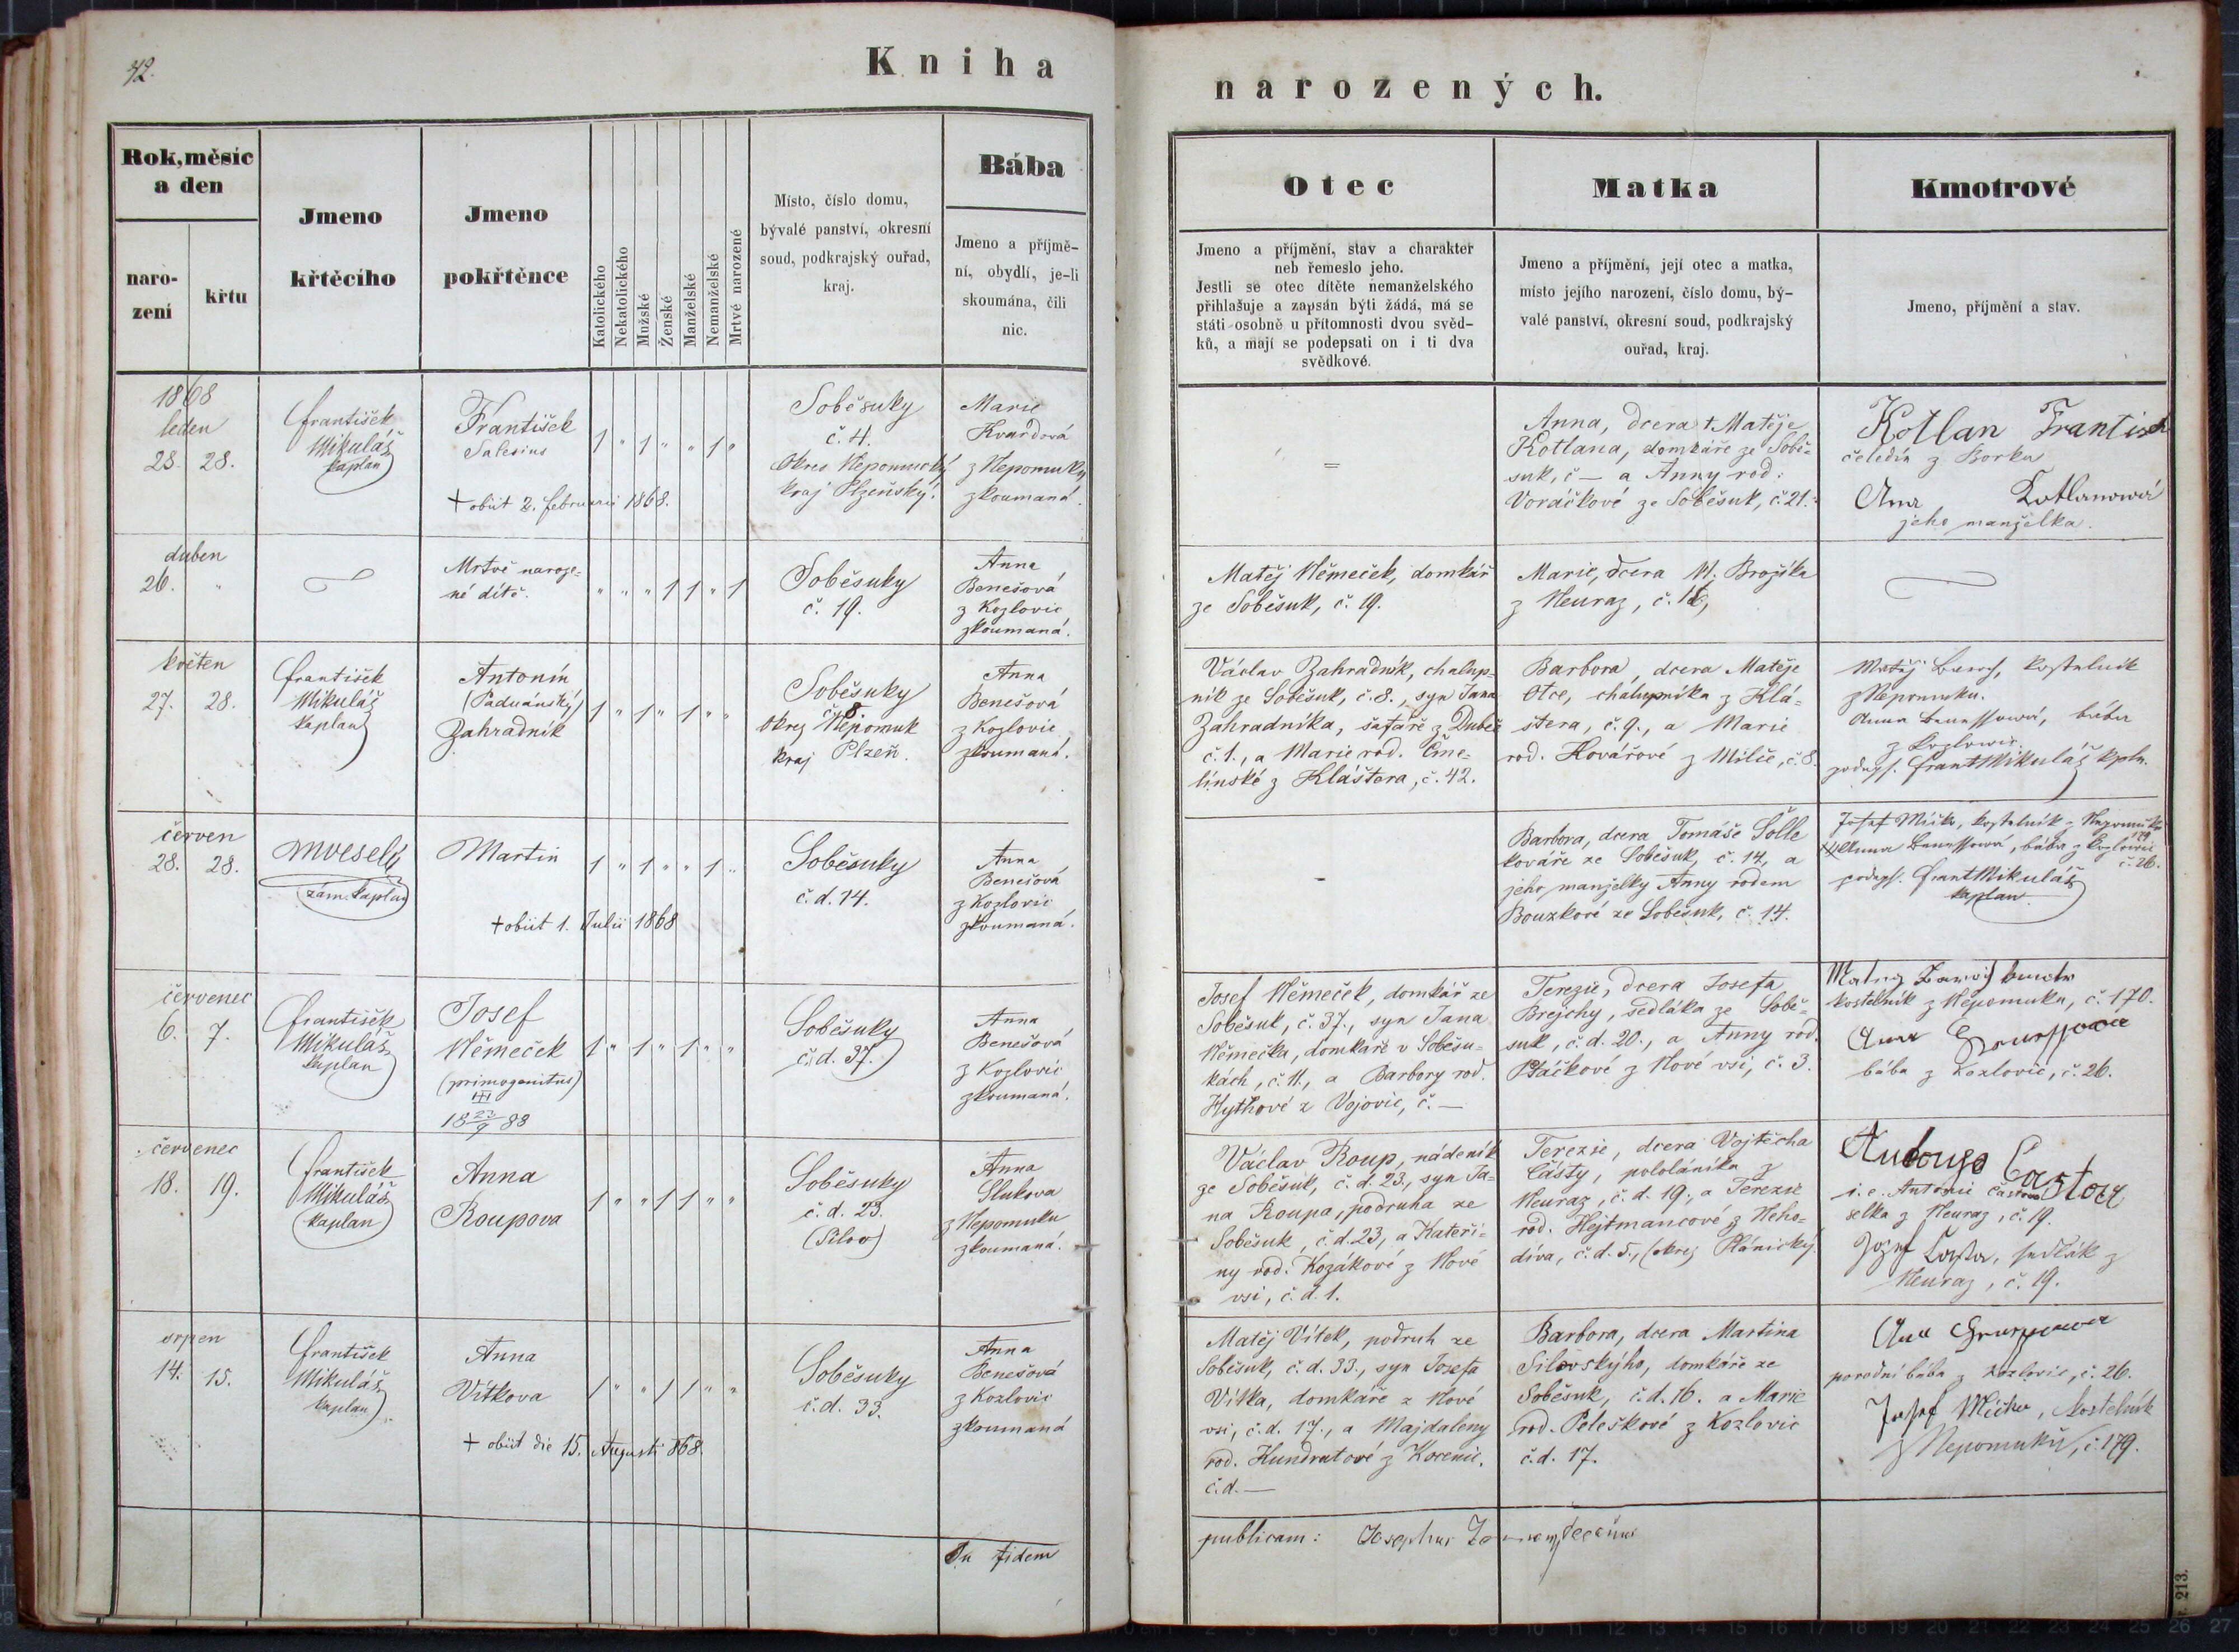 42.
Kniha
narozených.
Rok, měsíc
a den
naro-
zení
křtu
Jmeno
křtěcího
Jmeno
pokřtěnce
Katolického
Nekatolického
Mužské
Ženské
Manželské
Nemanželské
Mrtvé narozené
Místo, číslo domu,
bývalé panství, okresní
soud, podkrajský ouřad,
kraj.
Bába
Jmeno a příjmě-
ní, obydlí, je-li
skoumána, čili
nic.
Otec
Jmeno a příjmění, stav a charakter
neb řemeslo jeho.
Jestli se otec dítěte nemanželského
přihlašuje a zapsán býti žádá, má se
státi osobně u přítomnosti dvou svěd-
ků, a mají se podepsati on i ti dva
svědkové.
Matka
Jmeno a příjmění, její otec a matka,
místo jejího narození, číslo domu, bý-
valé panství, okresní soud, podkrajský
ouřad, kraj.
Kmotrové
Jmeno, příjmění a stav.
1868
leden
28. 28.
František
Mikuláš
kaplan
František
Salesius
+ obiit 2. februarii 1868.
1 " 1 " " 1 "
Soběsuky
č. 4.
Okres Nepomucký
kraj Plzeňský.
Marie
Kvardová
z Nepomuky
zkoumaná.
=
Anna, dcera + Matěje
Kotlana, domkáře ze Sobě=
suk, č — a Anny rod:
Voráčkové ze Soběsuk, č. 21.
Kotlan Frantisek
čeledín z Borku
Ana Kotlanowá
jeho manželka.
duben
26. "
Mrtvě naroze=
né dítě.
" " " 1 1 " 1
Soběsuky
č. 19.
Anna
Benešová
z Kozlovic
zkoumaná.
Matěj Němeček, domkář
ze Soběsuk, č. 19.
Marie, dcera M. Brožíka
z Neuraz, č.
květen
27. 28.
František
Mikuláš
kaplan
Antonín
(Paduánský)
Zahradník
1 " 1 " 1 " "
Soběsuky
č. 8.
okres Nepomuk
kraj Plzeň.
Anna
Benešová
z Kozlovic
zkoumaná.
Václav Zahradník, chalup=
ník ze Soběsuk, č. 8., syn Jana
Zahradníka, šafáře z Dubče
č. 1., a Marie rod. Čme=
línské z Kláštera, č. 42.
Barbora, dcera Matěje
Otce, chalupníka z Klá=
štera, č. 9., a Marie
rod. Kovářové z Milče, č. 8.
Matěj kostelník
z Nepomuku.
Anna Benessowá, bába
z Kozlowic.
podeps. Frant Mikuláš kpln.
červen
28. 28.
MVeselý
zám. kaplan
Martin
+ obiit 1. Julii 1868
1 " 1 " " 1 "
Soběsuky
č. d. 14.
Anna
Benešová
z Kozlovic
zkoumaná.
-
Barbora, dcera Tomáše Šolle
kováře ze Soběsuk, č. 14, a
jeho manželky Anny rodem
Bouzkové ze Soběsuk, č. 14.
Josef Mičke, kostelník z Nepomuku
179
Anna Benessowá, bába z Kozlowic
č. 26.
podeps. Frant Mikuláš
kaplan
červenec
6. 7.
František
Mikuláš
kaplan
Josef
Němeček
(primogenitus)
III
18 23/9 88
1 " 1 " 1 " "
Soběsuky
č. d. 37.
Anna
Benešová
z Kozlovic
zkoumaná.
Josef Němeček, domkář ze
Soběsuk, č. 37., syn Jana
Němečka, domkáře v Soběsu=
kách, č. 11., a Barbory rod.
Hythové z Vojovic, č. —
Terezie, dcera Josefa
Brejchy, sedláka ze Sobě=
suk, č. d. 20., a Anny rod.
Ptáčkové z Nové vsi, č. 3.
kostelník z Nepomuku, č. 170.
bába z Kozlovic, č. 26.
červenec
18. 19.
František
Mikuláš
kaplan
Anna
Roupova
1 " " 1 1 " "
Soběsuky
č. d. 23.
(Silov)
Anna
Slukova
z Nepomuku
zkoumaná.
Václav Roup, nádeník
ze Soběsuk, č. d. 23., syn Ja=
na Roupa, podruha ze
Soběsuk, č. d. 23, a Kateři=
ny rod. Kozákové z Nové
vsi, č. d. 1.
Terezie, dcera Vojtěcha
Částy, pololáníka z
Neuraz, č. d. 19., a Terezie
rod. Hejtmancové z Neho=
díva, č. d. 5., (okres Plánický.
i. e. Antonie Častová
selka z Neuraz, č. 19.
Jozef Časta, sedlák z
Neuraz, č. 19.
srpen
14. 15.
František
Mikuláš
kaplan
Anna
Vítkova
+ obiit die 15. Augusti 868.
1 " " 1 1 " "
Soběsuky
č. d. 33.
Anna
Benešová
z Kozlovic
zkoumaná
Matěj Vítek, podruh ze
Soběsuk, č. d. 33., syn Josefa
Vítka, domkáře z Nové
vsi, č. d. 17., a Majdaleny
rod. Kundratové z Kocenic,
č. d. —
Barbora, dcera Martina
Silovskýho, domkáře ze
Soběsuk, č. d. 16. a Marie
rod. Peleškové z Kozlovic
č. d. 17.
porodní bába z Kozlovic, č. 26.
Josef Mička, kostelník
z Nepomuku, č. 179.
In fidem
publicam: Josephus
213.